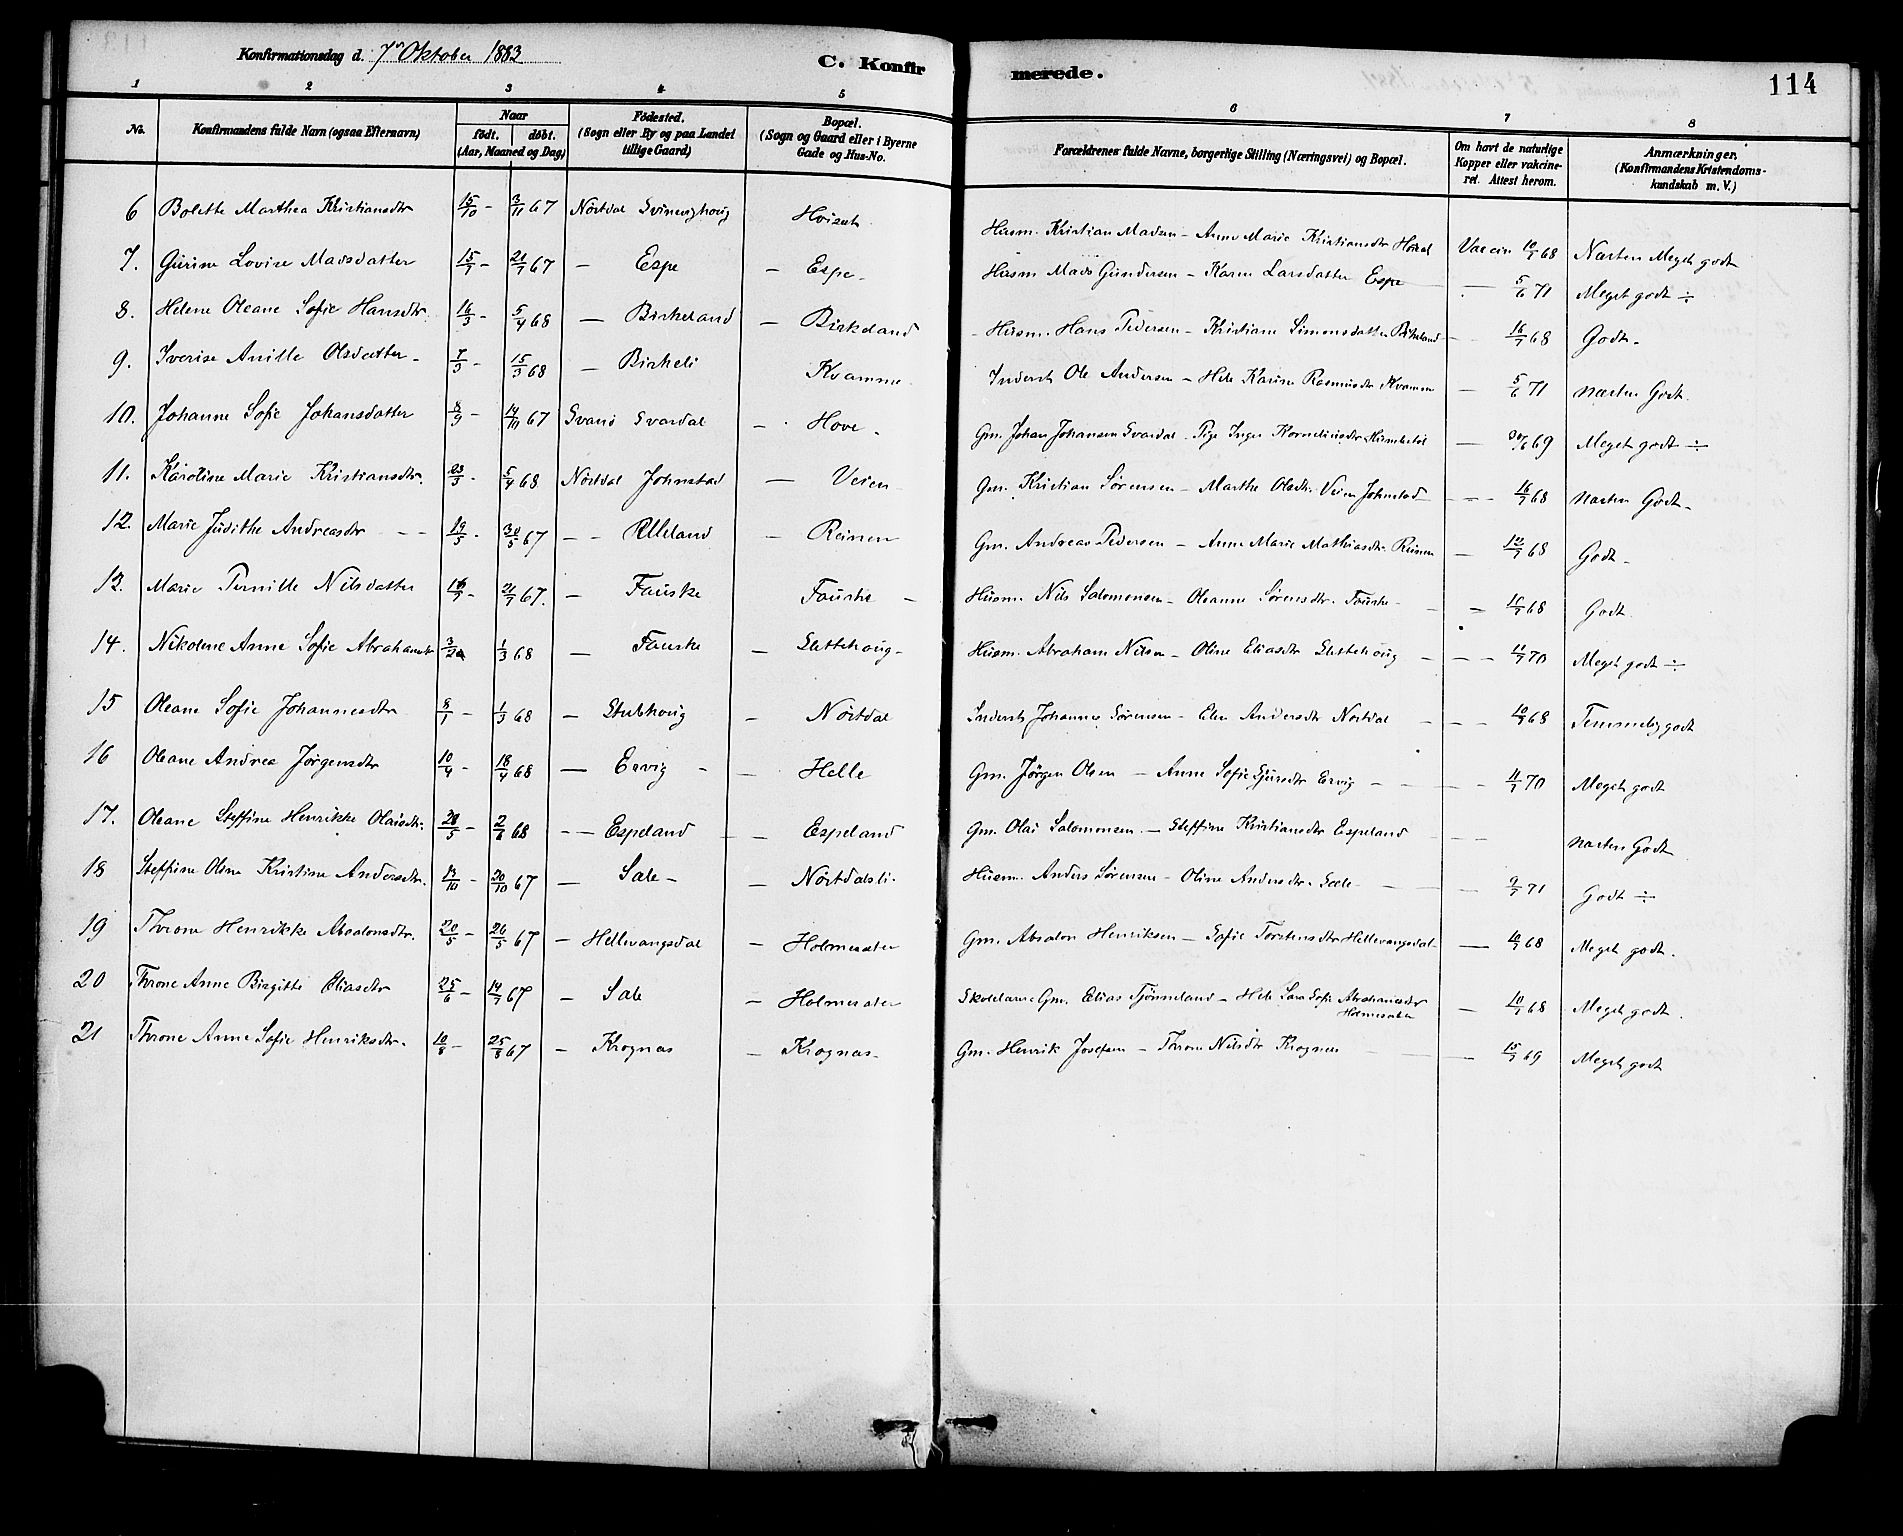 Konfirmationsdag d. 7de Oktober 1883
C. Konfir merede. 114
1 2 3 4 5 6 7 8
No. Konfirmandens fulde Navn (ogsaa Efternavn) Naar født. døbt. (Aar, Maaned og Dag) Fødested. (Sogn eller By og paa Landet tillige Gaard) Bopæl. (Sogn og Gaard eller i Byerne Gade og Hus-No. Forældrenes fulde Navne, borgerlige Stilling (Næringsvei) og Bopæl. Om havt de naturlige Kopper eller vakcineret. Attest herom. Anmærkninger. (Konfirmandens Kristendomskundskab m. V.)
6 Bolette Marthea Kristiansdtr 15/10 - 3/11 67 Nordal Svinevighoug Husm. Kristian Madsen - Anne Marie Kristiansdtr Vaccin 10/7 68 Næsten Meget godt
7. Gurine Lovise Madsdatter 15/7 - 21/7 67 - Espe - Espe - Husm Mads Gundersen - Karen Larsdatter Espe - 5/6 71 Meget godt ÷
8. Helene Oleane Sofie Hansdtr. 16/3 - 5/4 68 - Birkeland - Birkeland - Husm. Hans Pedersen - Kristiane Simonsdatter Birkeland - 16/7 68 Godt -
9. Iverine Anille Olsdatter - 7/3 - 15/3 68 - Birkeli Kvamme - Inderst Ole Andersen - Hele Karine Rasmusdtr Kvamme - 5/6 71 næsten Godt.
10. Johanne Sofie Johansdatter 8/9 - 14/11 67 Svanø Svardal - Hove - Gm. Johan Johansen Svardal - Pige Inger Kornelinsdtr - 30/6 69 Meget godt ÷
11. Karoline Marie Kristiansdtr. 23/3 - 5/4 68 Nordal Johnstad - Veien - Gm. Kristian Sørensen - Marthe Olsdtr. Veien Johnstad - 16/7 68 næsten Godt -
12. Marie Judithe Andreasdtr - 19/5 - 30/5 67 - Elleland - Reinen Gm. Andreas Pedersen - Anne Marie Mathiasdtr. Reinen - 12/7 68 Godt -
13. Marie Pernille Nilsdatter 16/7 - 21/7 67. - Fauske Fauske - Husm. Nils Salomonsen - Oleanne Sørensdtr. Fauske - 16/7 68 Godt.
14. Nikoline Anne Sofie Abrahamsdtr 3/2 1/3 68 - Fauske - Slettehoug - Husm. Abraham Nilsen - Oline Eliasdtr Slettehoug - 11/7 70 Meget godt ÷
15 Oleane Sofie Johannesdtr 8/1 - 1/3 68 - Stubhoug - Nordal Inderst Johannes Sørensen - Elen Andersdtr Nordal - 10/7 68 Temmelig godt
16 Oleane Andrea Jørgensdtr 10/4 - 18/4 68 - Eevig - Helle Gm. Jørgen Olsen - Anne Sofie Gjursdtr Eevig - 11/7 70 Meget godt
17. Oleane Steffine Henrikke Olaisdtr. 28/5 - 2/6 68 - Espeland - Espeland Gm. Olai Salomonsen - Steffine Kristiansdtr Espeland - næsten Godt
18 Steffine Oline Kristine Andersdtr. 13/10 - 20/10 67 - Sale - - Nordalsli - Husm. Anders Sørensen - Oline Andersdtr. Sale - 9/7 71 Godt ÷
19 Throne Henrikke Absalonsdtr. 20/5 - 26/5 67 - Hellevangsdal - Holmesæter Gm. Absalon Henriksen - Sofie Torstensdtr Hellevangsdal - 10/7 68 Meget godt.
20 Throne Anne Birgitte Eliasdtr 25/6 - 14/7 67 - Sale - Holmesæter Skolelærer Gm. Elias Tjønneland - Hele Sara Sofie Abrahamsdtr Holmesæter - 10/7 68 Meget godt.
21 Throne Anne Sofie Henriksdtr. 10/8 - 25/8 67 - Krognæs - Krognæs - Gm. Henrik Josefsen - Throne Nilsdtr Krognæs - 15/7 69 Meget godt